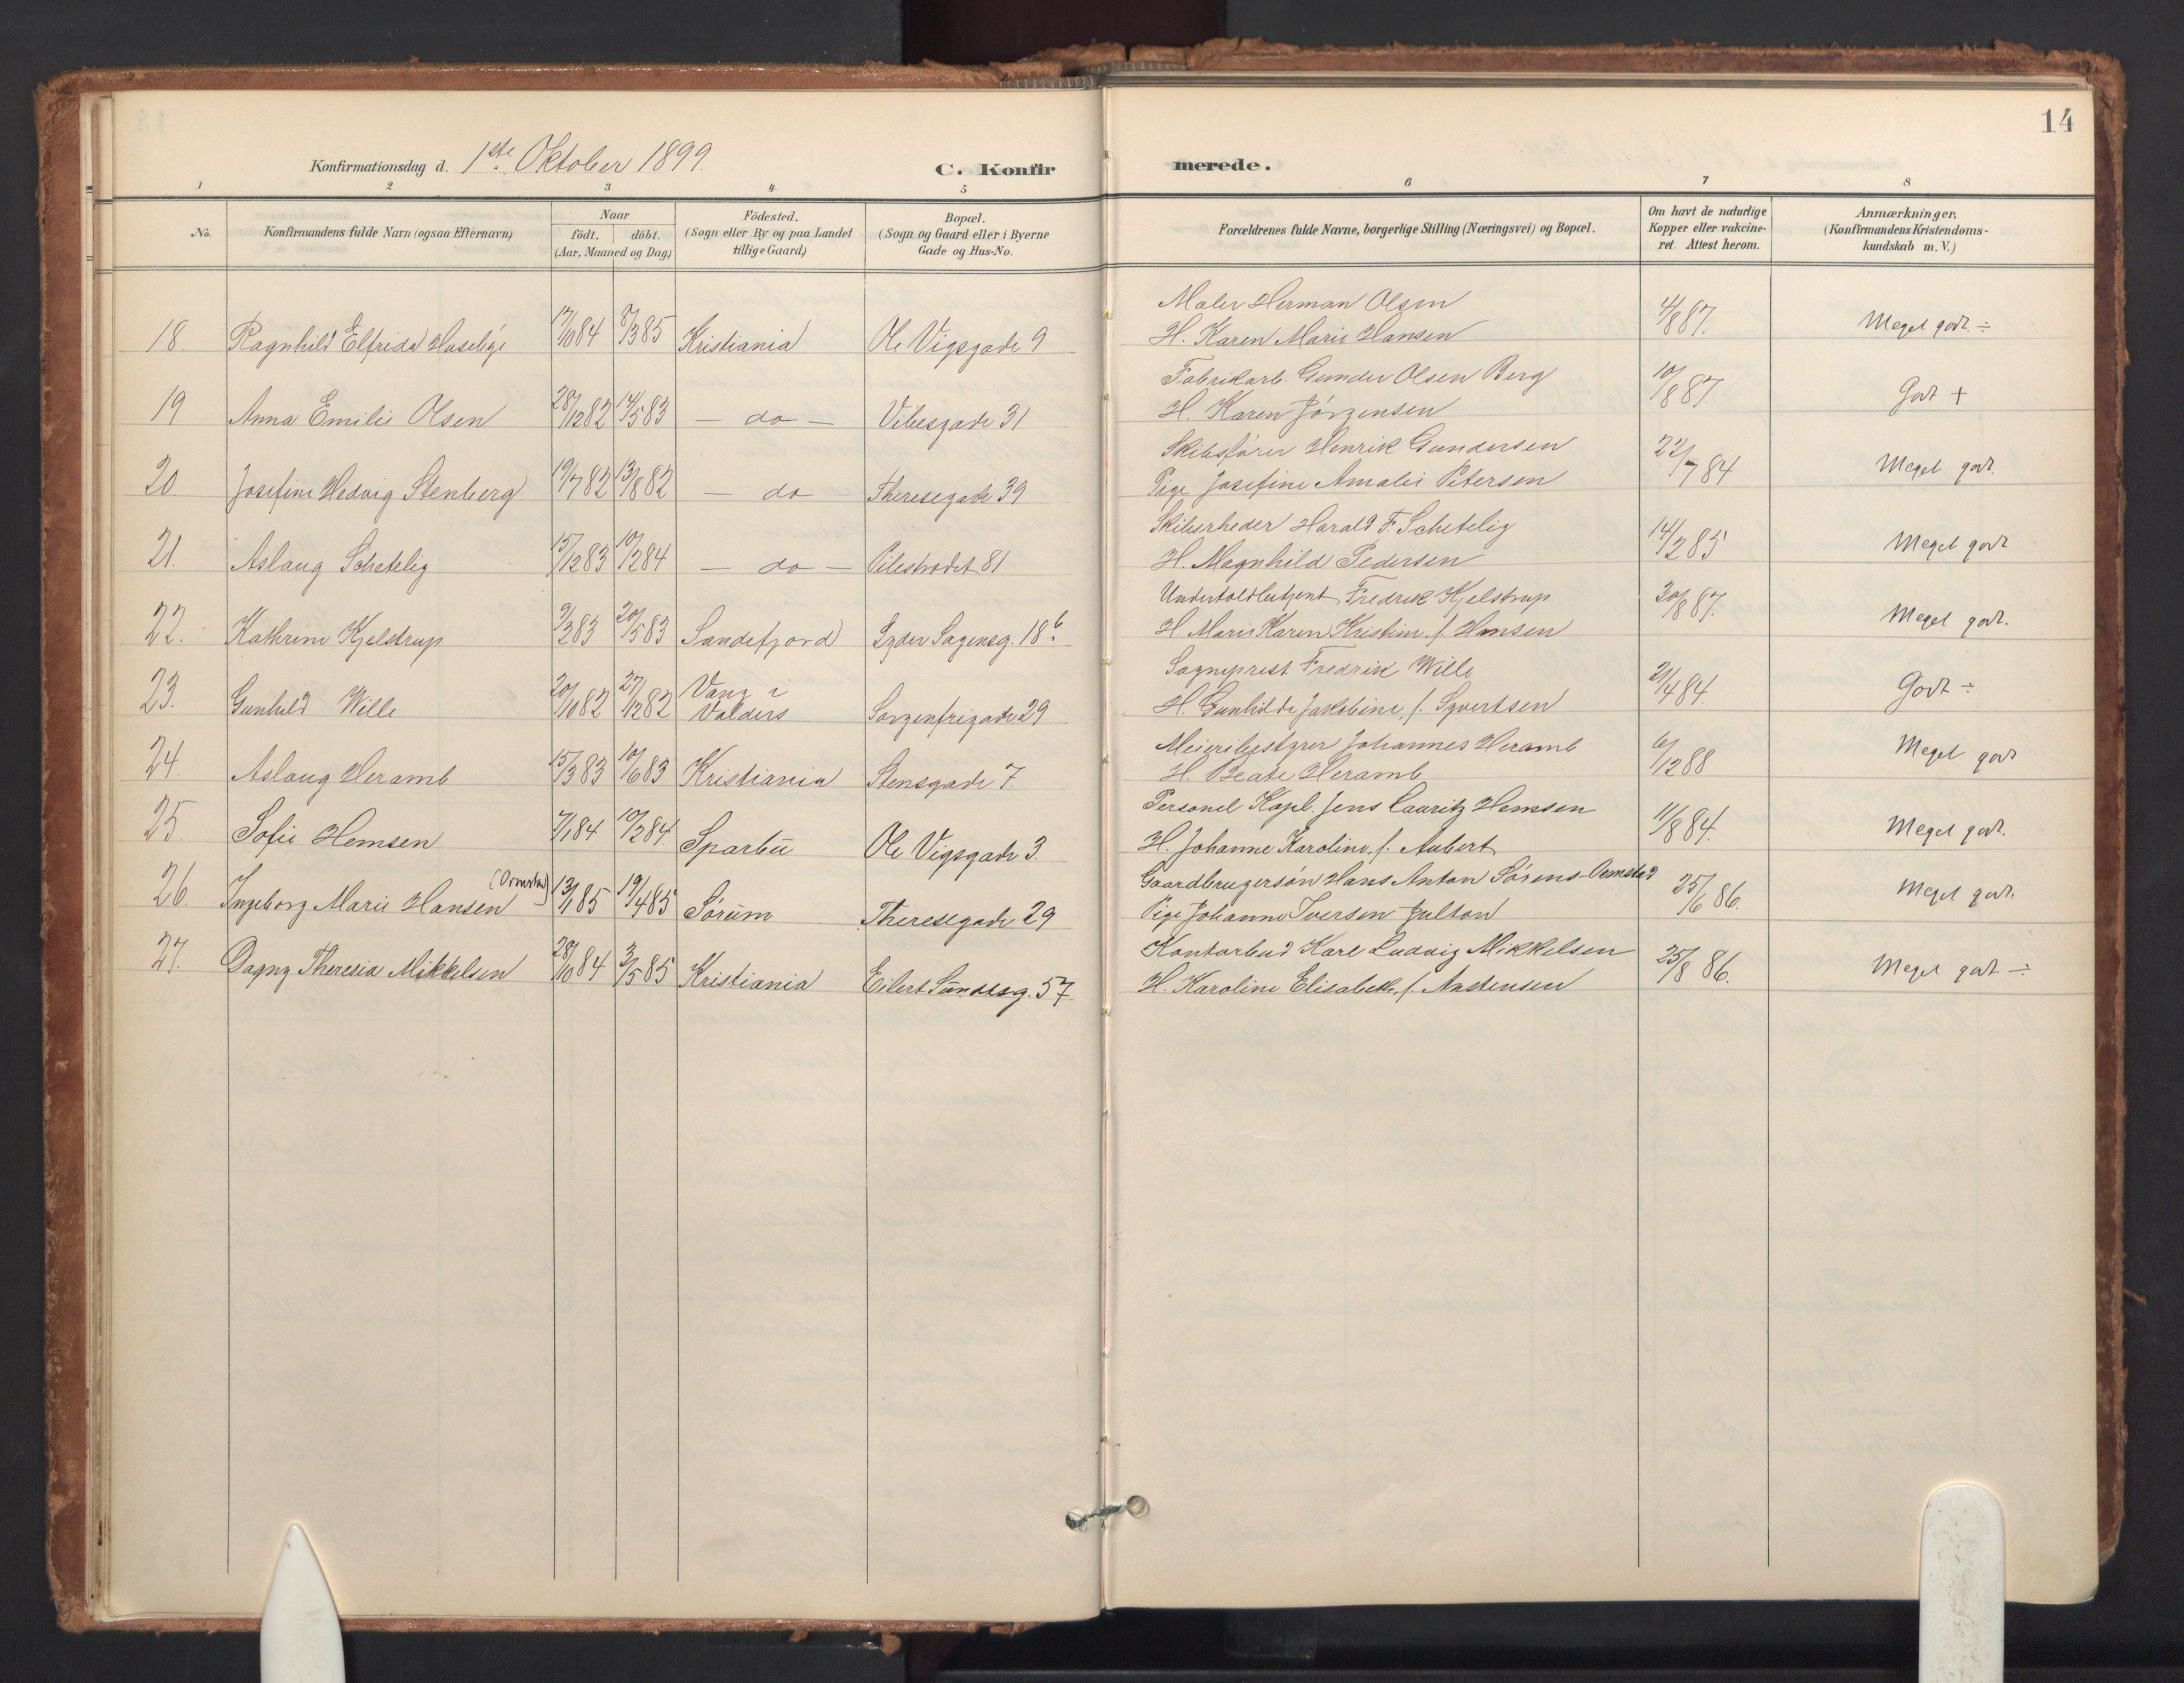 14
Konfirmationsdag d. 1ste Oktober 1899.
C. Konfirmerede.
1 2 3 4 5 6 7 8
No. Konfirmandens fulde Navn (ogsaa Efternavn) Naar födt. döbt. (Aar, Maaned og Dag) Födested. (Sogn eller By og paa Landet tillige Gaard) Bopæl. (Sogn og Gaard eller i Byerne Gade og Hus-No. Forældrenes fulde Navne, borgerlige Stilling (Næringsvei) og Bopæl. Om havt de naturlige Kopper eller vakcineret. Attest herom. Anmærkninger, (Konfirmandens Kristendomskundskab m. V.)
Maler Herman Olsen
18 Ragnhild Elfrida Huseby 17/10 84 8/3 85 Kristiania Ole Vigsgade 9 H. Karen Marie Hansen 4/8 87. Meget godt. ÷
Fabrikarb. Gunder Olsen Berg
19 Anna Emilie Olsen 28/12 82 14/5 83 — do — Vibesgade 31 H. Karen Jörgensen 10/8 87. Godt +
Skibsfører Henrik Gundersen
20 Josefine Hedvig Stenberg 19/7 82 13/8 82 — do — Theresegade 39 Pige Josefine Amalie Petersen 22/7 84 Meget godt.
Skibsrheder Harald F. Schetelig
21. Aslaug Schetelig 15/12 83 10/2 84 — do — Pilestrædet 81 H. Magnhild Pedersen 14/2 85 Meget godt
Undertoldbetjent Fredrik Kjelstrup
22. Kathrine Kjelstrup 9/2 83 20/5 83 Sandefjord Lyder Sagensg. 18b. H. Marie Karen Kristine, f. Hansen 30/8 87. Meget godt.
Sogneprest Fredrik Wille
23. Gunhild Wille 20/10 82 27/12 82 Vang i Valders Sorgenfrigade 29 H. Gunhilde Jakobine, f. Syvertsen 21/4 84. Godt ÷
Meieribestyrer Johannes Heramb
24. Aslaug Heramb 15/3 83 10/6 83 Kristiania Stensgade 7. H. Beate Heramb 6/12 88 Meget godt
Personel Kapl. Jens Lauritz Hemsen
25. Sofie Hemsen 7/1 84 10/2 84. Sparbu Ole Vigsgade 3. H. Johanne Karoline, f. Aubert 11/8 84. Meget godt.
(Ormstad) Gaardbrugersön Hans Anton Sörens-Ormstad
26. Ingeborg Marie Hansen 13/1 85 19/4 85 Sörum Theresegade 29 Pige Johanne Iversen Julton 25/6 86. Meget godt.
Kontorbud Karl Ludvig Mikkelsen
27. Dagny Theresia Mikkelsen 28/10 84 3/5 85 Kristiania Eilert Sundtsg. 57. H. Karoline Elisabeth, f. Anstensen 25/8 86. Meget godt ÷